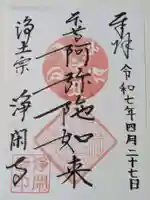 奉拝
令和七年四月二十七日
阿弥陀如来
浄土宗
浄閑寺